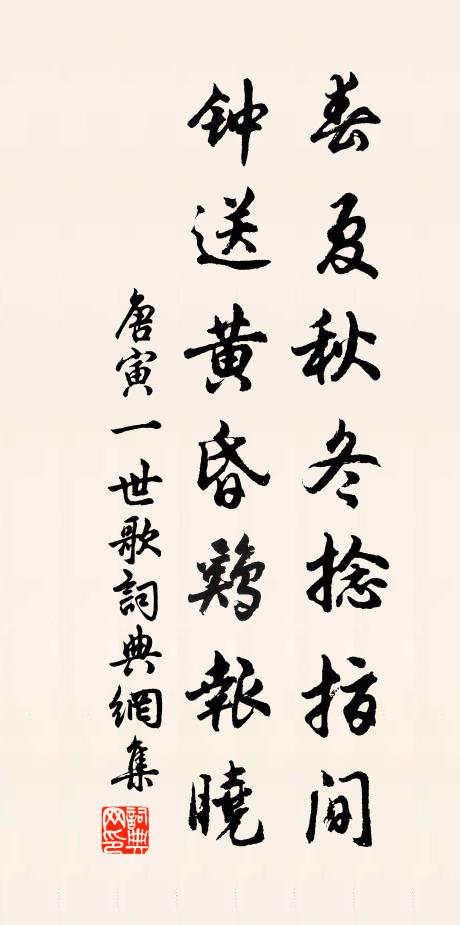 春夏秋冬捻指间
钟送黄昏鷄報曉
唐寅一世歌詞典網集
詞典網印